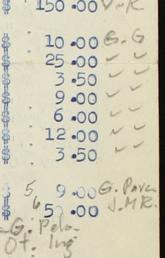 $ 150.00 V-R
$ 10.00 G.G
$ 25.00 ✓ ✓
$ 3.50 ✓ ✓
$ 9.00 ✓ ✓
$ 6.00 ✓ ✓
$ 12.00 ✓ ✓
$ 3.50 ✓ ✓
$ 5 9.00 G.
$ 50.00 J.M R.
G.
Ot. Ing